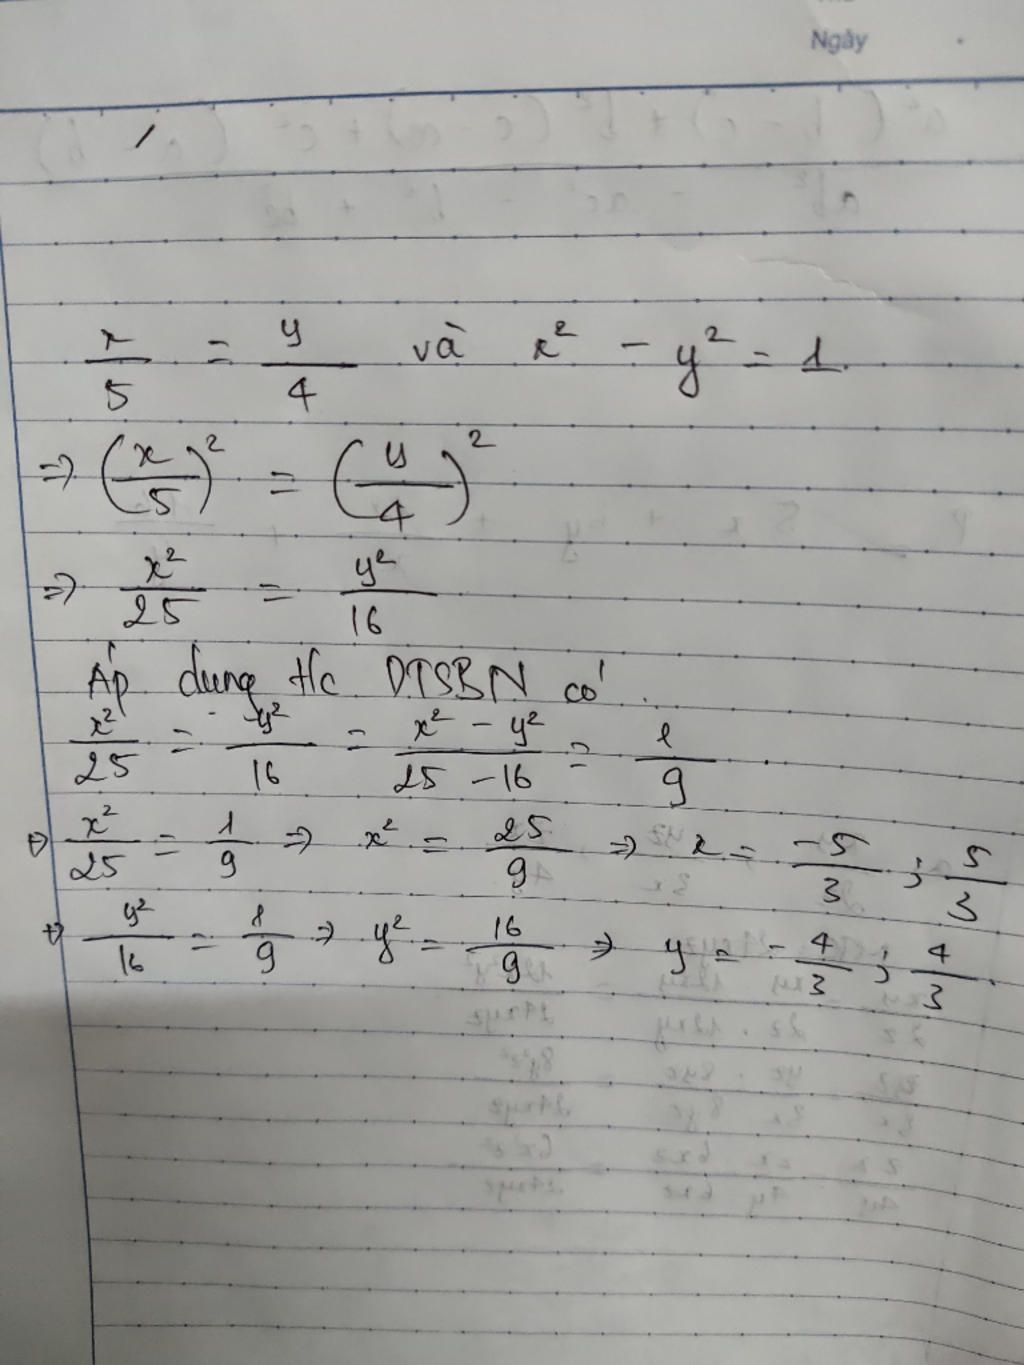 Ngày
x/5 = y/4 và x² - y² = 1
=> (x/5)² = (y/4)²
=> x²/25 = y²/16
Áp dụng t/c DTSBN có
x²/25 = y²/16 = x² - y²/25 - 16 = 1/9
x²/25 = 1/9 => x² = 25/9 => x = -5/3 ; 5/3
y²/16 = 1/9 => y² = 16/9 => y = -4/3 ; 4/3